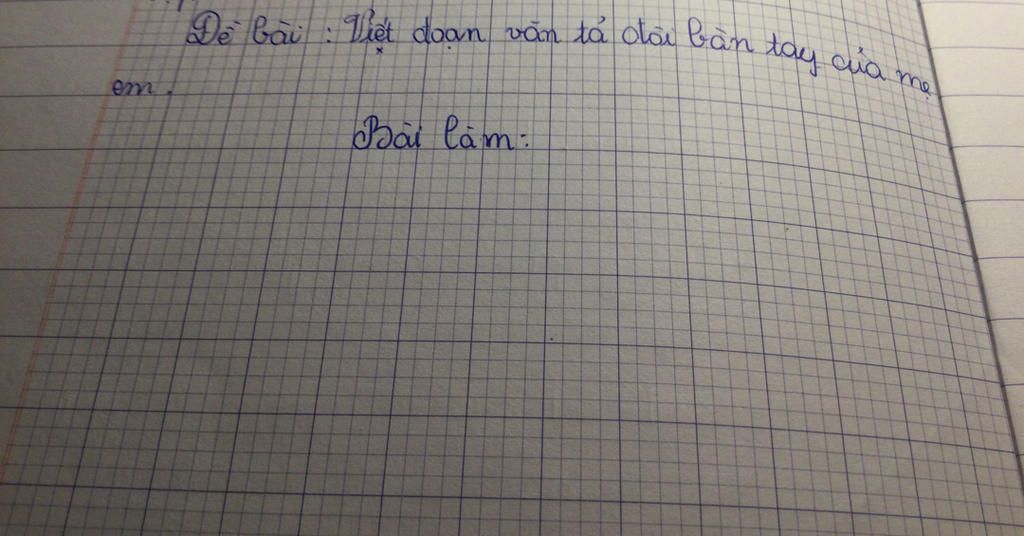 Đề bài : Viết đoạn văn tả đôi bàn tay của mẹ
em.
Bài làm: